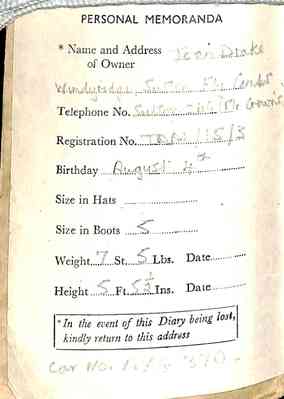 PERSONAL MEMORANDA
* Name and Address Jean Drake
of Owner
Windyridge, Sutton
Telephone No. Sutton
Registration No.
Birthday August 4th
Size in Hats
Size in Boots 5
Weight 7 St. 5 Lbs. Date
Height 5 Ft. 5½ Ins. Date
*In the event of this Diary being lost,
kindly return to this address
Car No.